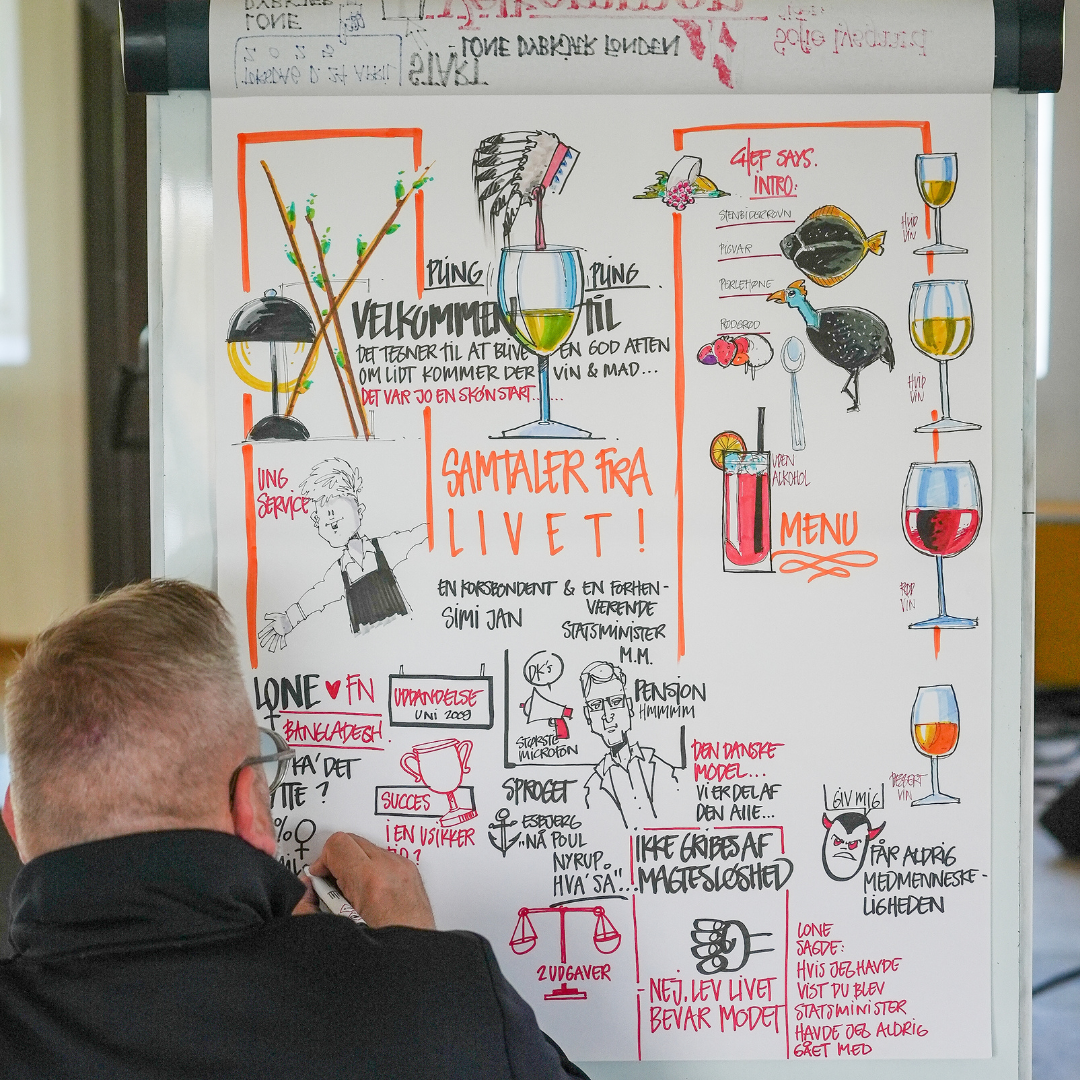 START
- LONE DYBKJÆR FONDEN
PLING PLING
VELKOMMEN TIL
DET TEGNER TIL AT BLIVE EN GOD AFTEN
OM LIDT KOMMER DER VIN & MAD...
DET VAR JO EN SKØN START......
UNG
SERVICE
SAMTALER FRA
LIVET!
EN KORSBONDENT & EN FORHEN-
VÆRENDE
SIMI JAN
STATSMINISTER
M.M.
CHEF SAYS.
INTRO:
STENBIDERROVN
PIGVAR
PERLEHØNE
RØDGRØD
HVID
VIN
HVID
VIN
UDEN
ALKOHOL
MENU
RØD
VIN
DESSERT
VIN
LONE ♥ FN
BANGLADESH
KA' DET
?
%
UDDANDELSE
UNI 2009
SUCCES
I EN USIKKER
DK's
STØRSTE
MICROFON
PENSION
HMMMM
DEN DANSKE
MODEL...
VI ER DEL AF
DEN ALLE...
SPROGET
ESBJERG
"NÅ POUL
NYRUP.
HVA' SÅ"...
IKKE GRIBES AF
MAGTESLØSHED
GIV MIG
FÅR ALDRIG
MEDMENNESKE-
LIGHEDEN
2 UDGAVER
NEJ, LEV LIVET
BEVAR MODET
LONE
SAGDE:
HVIS JEG HAVDE
VIST DU BLEV
STATSMINISTER
HAVDE JEG ALDRIG
GÅET MED